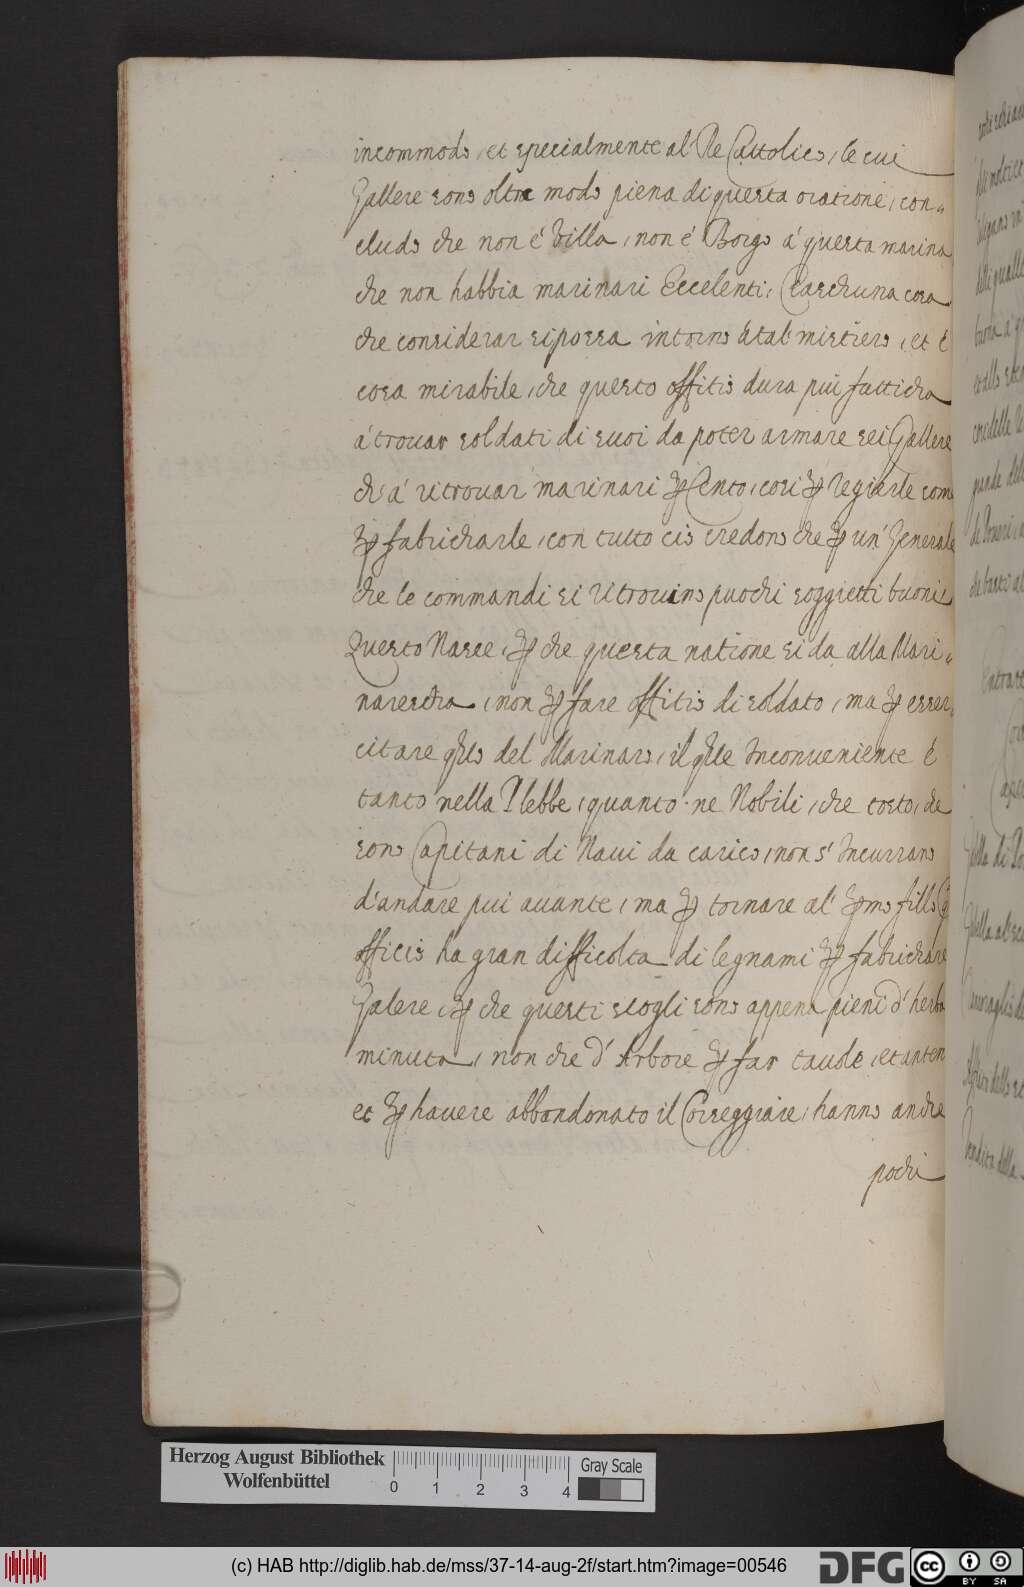 incommodo, et specialmente al Re Cattolico, le cui
Gallere sono oltra modo piena di questa oratione, con„
cludo che non é Villa, non é Borgo á questa marina
che non habbia marinari Eccelenti, Ciascheuna cosa
che considerar si possa intorno á tal' mistiero, et é
cosa mirabile, che questo offitio dura piú fatticha
á trouar soldati di suoi da poter armare sei Gallere
ch' á ritrouar marinari ꝑ Cento, cosi ꝑ regiarle com
ꝑ fabricharle, con tutto cio credono che ꝑ un' Generale
che le commandi si ritrouino puochi soggietti buoni
Questo Nasce, ꝑ che questa natione si da alla Mari„
narescha, non ꝑ fare offitio di soldato, ma ꝑ esser„
citare q̃llo del Marinaro, il q̃le Inconueniente é
tanto nella Plebbe, quanto ne Nobili, che tosto, che
sono Capitani di Naui da carico, non s' Incurrano
d'andare piu auante, ma ꝑ tornare al' ꝑmo fillo
officio ha gran difficolta di legnami ꝑ fabrichare
Galere, ꝑ che questi scogli sono appena pieni d' herba
minuta, non che d' Arbore ꝑ far tauole, et anten
et ꝑ hauere abbandonato il Correggiare, hanno anche
pochi
Herzog August Bibliothek
Wolfenbüttel
0 1 2 3 4
Gray Scale
(c) HAB http://diglib.hab.de/mss/37-14-aug-2f/start.htm?image=00546
DFG
cc BY SA